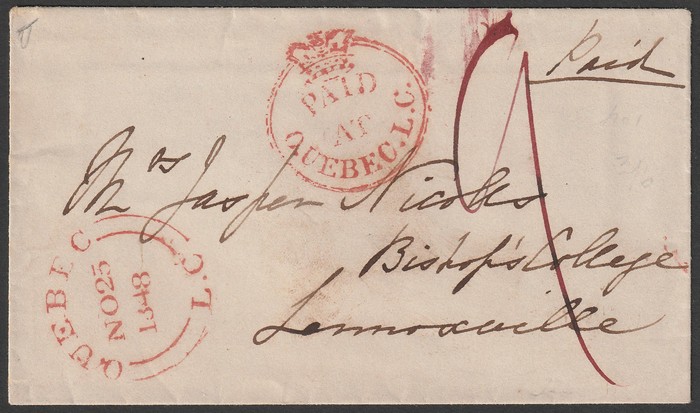 Paid
PAID
AT
QUEBEC.L.C.
9
Mrs Jasper Nicolls
Bishop's College
Lennoxville
QUEBEC L.C
NO 25
1848